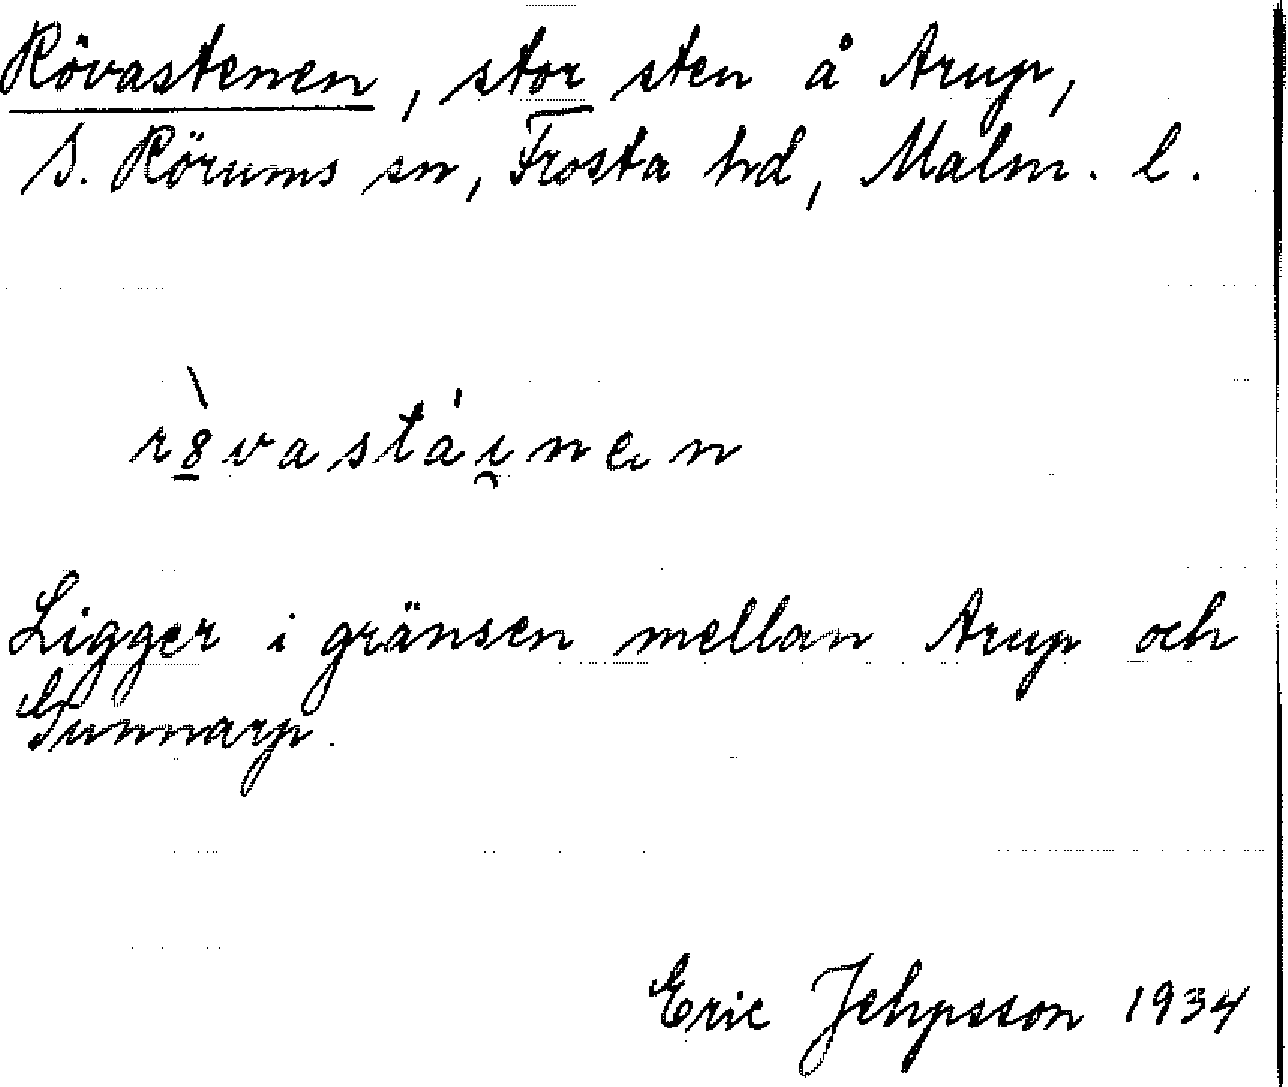 Rövastenen, stor sten å Arup,
S. Rörums sn, Frosta hd, Malm. l.
rö̀vastái̯nen
Ligger i gränsen mellan Arup och
Gunnarp.
Eric Jehpsson 1934